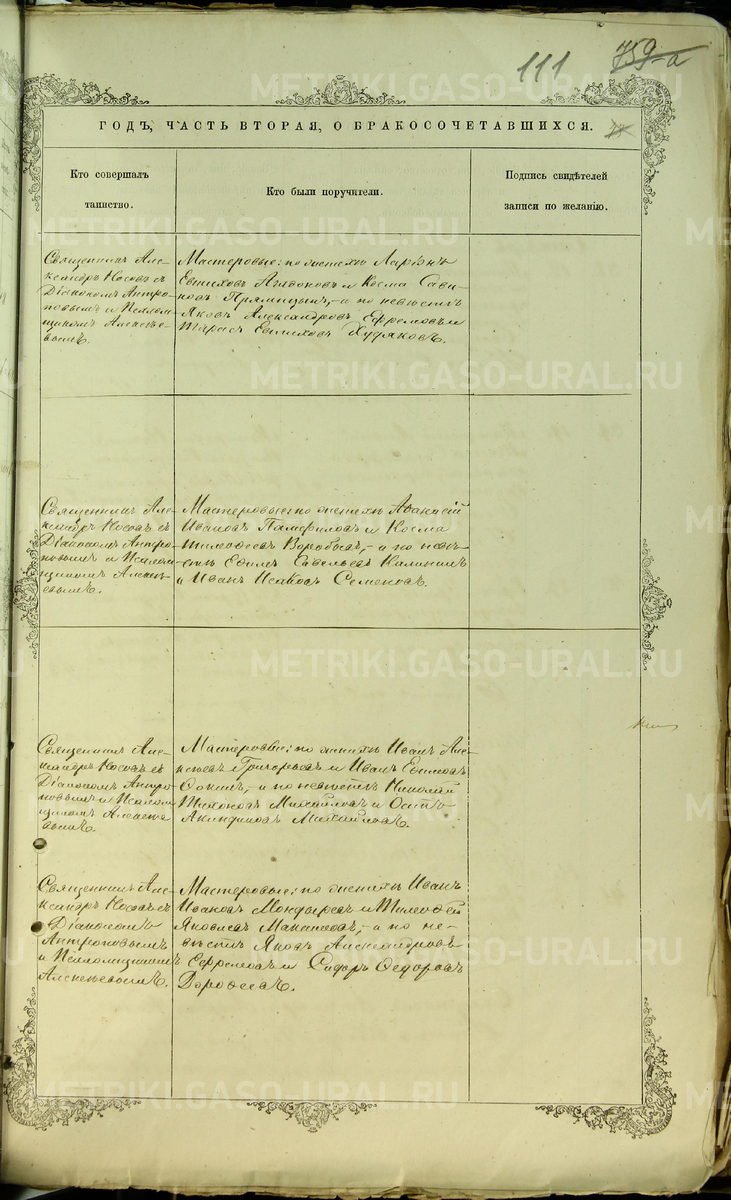 111 759-а
ГОДЪ, ЧАСТЬ ВТОРАЯ, О БРАКОСОЧЕТАВШИХСЯ.
Кто совершалъ
таинство.
Кто были поручители.
Подпись свидѣтелей
записи по желанію.
Священникъ Але-
ксандръ Носовъ съ
Діакономъ Антро-
повымъ и Псалом-
щикомъ Алексѣе-
вымъ.
Мастеровые: по женихѣ Ларіонъ
Евтиховъ Агафоновъ и Косма Сави-
новъ Прямицынъ,- а по невѣстѣ
Яковъ Александровъ Ефремовъ и
Тарасъ Евтиховъ Худяковъ.
Священникъ Але-
ксандръ Носовъ съ
Діакономъ Антро-
повымъ и Псалом-
щикомъ Алексѣ-
евымъ.
Мастеровые: по женихѣ Аѳанасій
Ивановъ Памфиловъ и Косма
Тимоѳеевъ Воробьевъ,- а по невѣ-
стѣ Ефимъ Савельевъ Калининъ
и Иванъ Исаковъ Семеновъ.
Священникъ Але-
ксандръ Носовъ съ
Діакономъ Антро-
повымъ и Псалом-
щикомъ Алексѣе-
вымъ.
Мастеровые: по женихѣ Иванъ Але-
ксѣевъ Григорьевъ и Иванъ Евтиховъ
Ѳокинъ,- а по невѣстѣ Николай
Тихоновъ Михайловъ и Осипъ
Акиндиновъ Михайловъ.
Священникъ Але-
ксандръ Носовъ съ
Діакономъ
Антроповымъ
и Псаломщикомъ
Алексѣевымъ.
Мастеровые: по женихѣ Иванъ
Ивановъ Мондыревъ и Тимоѳей
Яковлевъ,- а по не-
вѣстѣ Яковъ Александровъ
Ефремовъ и Сидоръ Ѳедоровъ
Дороѳеевъ.
METRIKI.GASO-URAL.RU